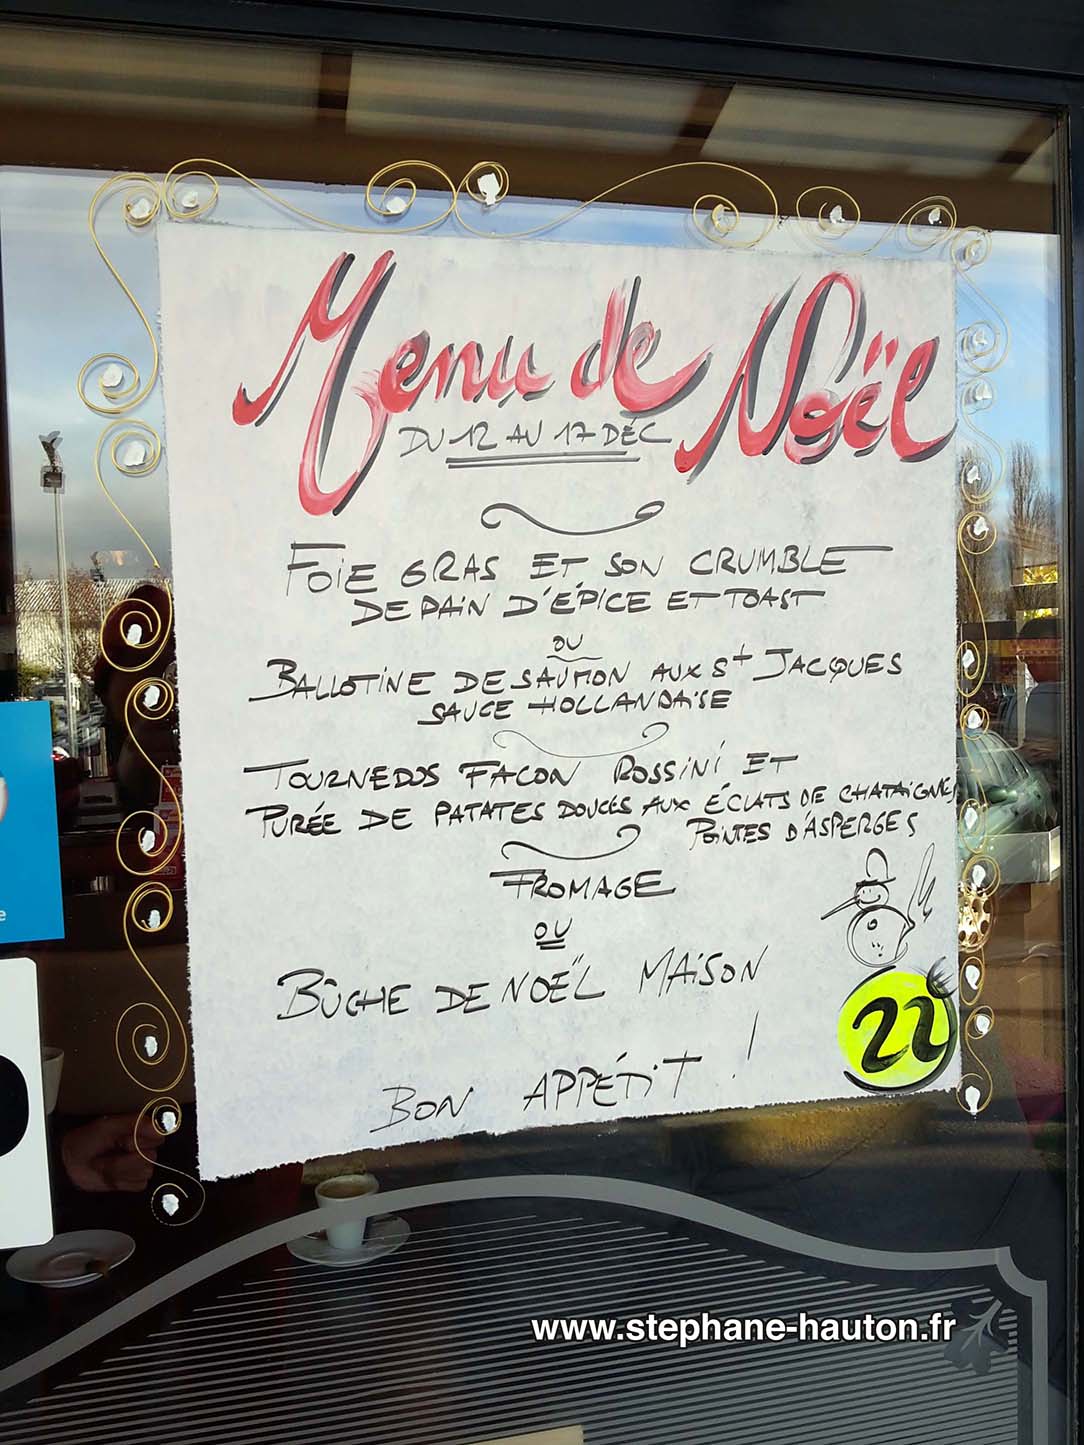 Menu de Noël
DU 12 AU 17 DÉC
FOIE GRAS ET SON CRUMBLE
DE PAIN D'ÉPICE ET TOAST
OU
BALLOTINE DE SAUMON AUX St JACQUES
SAUCE HOLLANDAISE
TOURNEDOS FACON ROSSINI ET
PURÉE DE PATATES DOUCES AUX ÉCLATS DE CHATAIGNES
POINTES D'ASPERGES
FROMAGE
OU
BÛCHE DE NOËL MAISON
22€
BON APPÉTIT !
www.stephane-hauton.fr